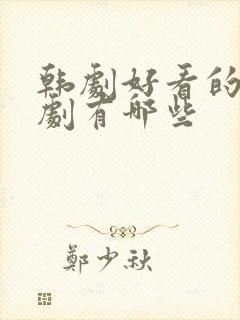 韩劇好看的
劇有哪些
鄭少秋